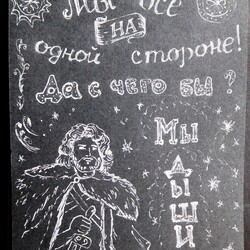 Мы все
НА
одной стороне!
Да с чего бы?
Мы
ДЫШИ